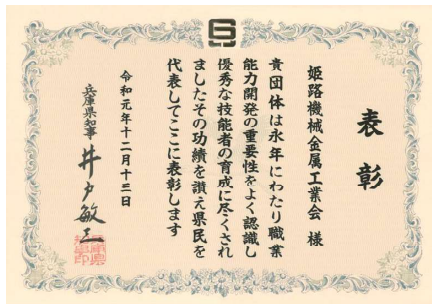 表彰
姫路機械金属工業会 様
貴団体は永年にわたり職業
能力開発の重要性をよく認識し
優秀な技能者の育成に尽くされ
ましたその功績を讃え県民を
代表してここに表彰します
令和元年十二月十三日
兵庫県知事 井戸敏三